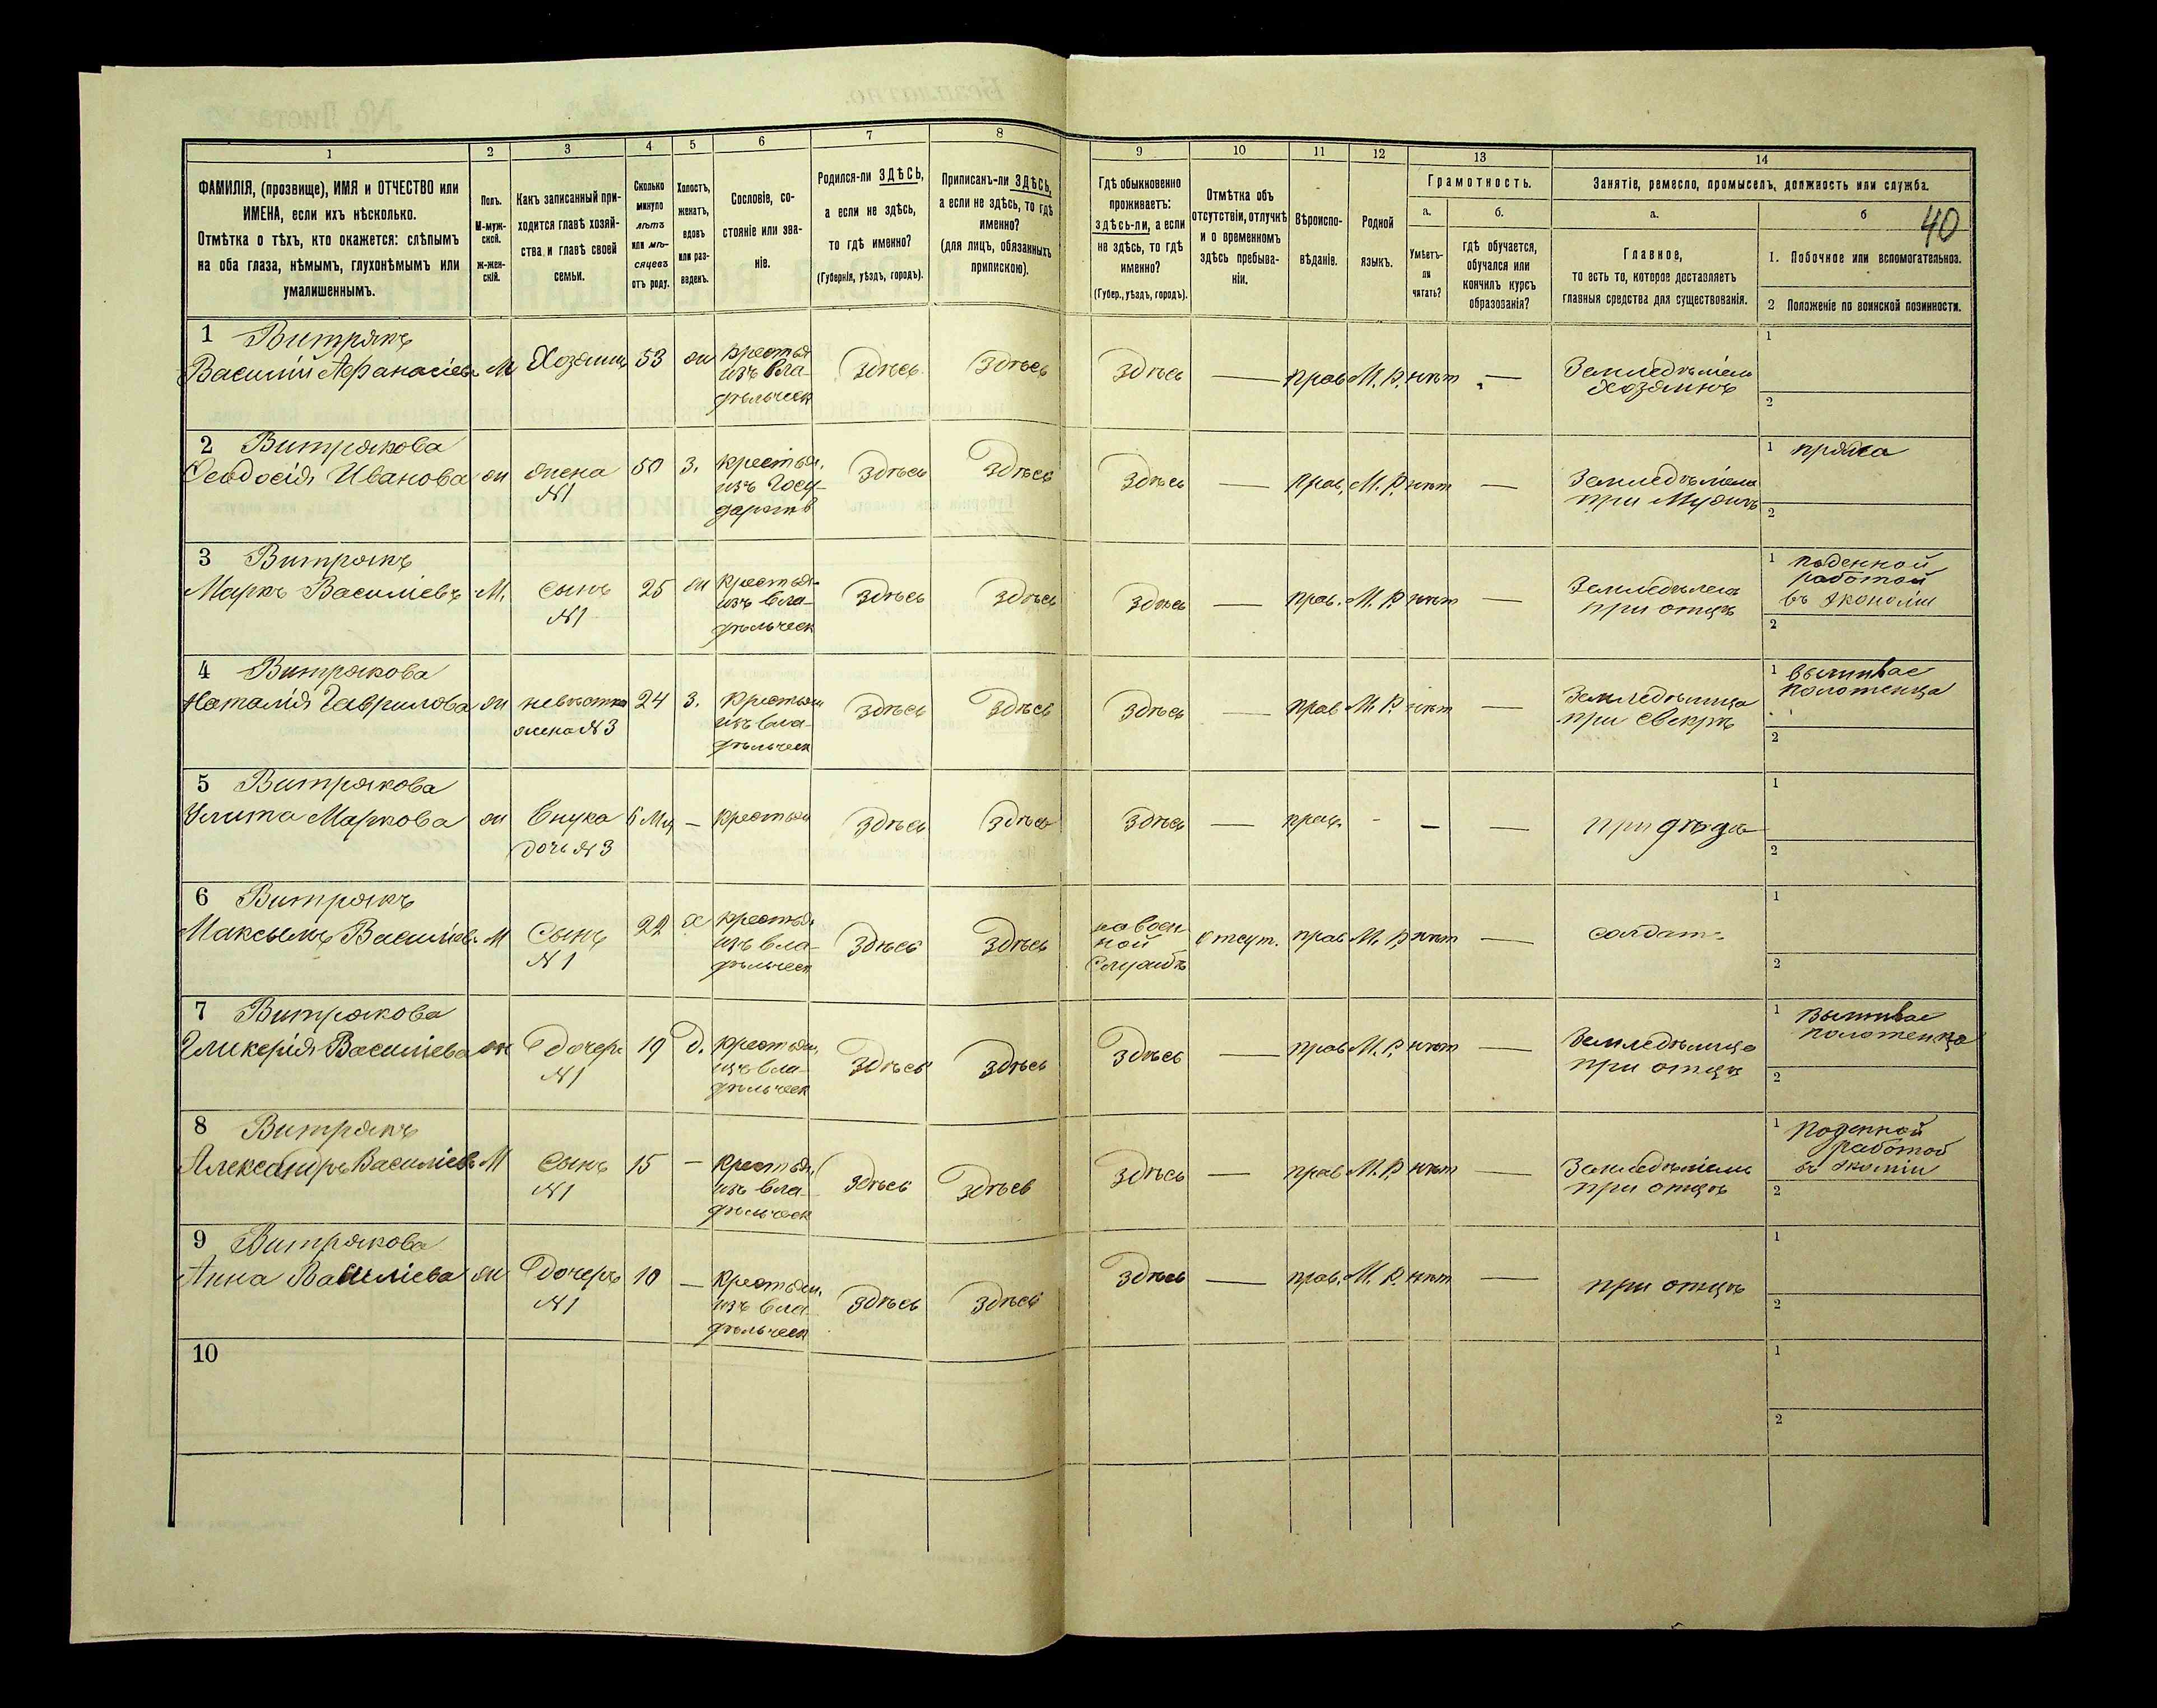 1 2 3 4 5 6 7 8 9 10 11 12 13 14
ФАМИЛІЯ, (прозвище), ИМЯ и ОТЧЕСТВО или
ИМЕНА, если ихъ нѣсколько.
Отмѣтка о тѣхъ, кто окажется: слѣпымъ
на оба глаза, нѣмымъ, глухонѣмымъ или
умалишеннымъ.
Полъ.
М-муж-
ской.
ж-жен-
скій.
Какъ записанный при-
ходится главѣ хозяй-
ства и главѣ своей
семьи.
Сколько
минуло
лѣтъ
или мѣ-
сяцевъ
отъ роду.
Холостъ,
женатъ,
вдовъ
или раз-
веденъ.
Сословіе, со-
стояніе или зва-
ніе.
Родился-ли ЗДѢСЬ,
а если не здѣсь,
то гдѣ именно?
(Губернія, уѣздъ, городъ).
Приписанъ-ли ЗДѢСЬ,
а если не здѣсь, то гдѣ
именно?
(для лицъ, обязанныхъ
припискою).
Гдѣ обыкновенно
проживаетъ:
здѣсь-ли, а если
не здѣсь, то гдѣ
именно?
(Губер., уѣздъ, городъ).
Отмѣтка объ
отсутствіи, отлучкѣ
и о временномъ
здѣсь пребыва-
ніи.
Вѣроиспо-
вѣданіе.
Родной
языкъ.
Грамотность.
а.
Умѣетъ-
ли
читать?
б.
гдѣ обучается,
обучался или
кончилъ курсъ
образованія?
Занятіе, ремесло, промыселъ, должность или служба.
а.
Главное,
то есть то, которое доставляетъ
главныя средства для существованія.
б
40
1. Побочное или вспомогательное.
2 Положеніе по воинской повинности.
1 Витрякъ
Василій Афанасіевъ М Хозяинъ 53 ж крестья
изъ вла-
дѣльческ
Здѣсь Здѣсь Здѣсь — прав М. Р. нѣтъ —
Земледѣлецъ
хозяинъ
1
2
2 Витрякова
Ѳеодосія Иванова ж жена
№1
50 З. крестья.
изъ Госу-
дарств
Здѣсь Здѣсь Здѣсь — прав. М. Р. нѣтъ —
при Мужѣ
1 пряжа
2
3 Витрякъ
Маркъ Василіевъ М. сынъ
№1
25 ж крестья-
изъ вла-
дѣльческ
Здѣсь Здѣсь Здѣсь — прав. М. Р. нѣтъ —
при отцѣ
1 поденной
работой
въ экономіи
2
4 Витрякова
Наталія Гаврилова ж невѣстка
жена №3
24 З. крестьян
изъ вла-
дѣльческ
Здѣсь Здѣсь Здѣсь — прав М. Р. нѣтъ —
Земледѣлица
при свекрѣ
1 вышивае
полотенца
2
5 Витрякова
Улита Маркова ж Внука
дочь №3
6 Мц — крестьян
Здѣсь Здѣсь Здѣсь — прав. - — —
при дѣдѣ
1
2
6 Витрякъ
Максымъ Василіев. М Сынъ
№1
22 х крестья
изъ вла-
дѣльческ
Здѣсь Здѣсь
на воен
ной
Службѣ
отсут. прав М. Р. нѣтъ —
солдатъ
1
2
7 Витрякова
Гликерія Василіева ж дочерь
№1
19 д. крестьян.
изъ вла-
дѣльческ
Здѣсь Здѣсь Здѣсь — прав М. Р. нѣтъ —
Земледѣлица
при отцѣ
1 вышивае
полотенца
2
8 Витрякъ
Александръ Василіевъ М сынъ
№1
15 — крестья,
изъ вла-
дѣльческ
здѣсь здѣсь Здѣсь — прав М. Р. нѣтъ —
при отцѣ
1 поденной
работой
2
9 Витрякова
Анна Василіева ж дочерь
№1
10 — крестьян.
изъ вла-
дѣльческ
Здѣсь Здѣсь Здѣсь — прав. М. Р. нѣтъ —
при отцѣ
1
2
10
1
2